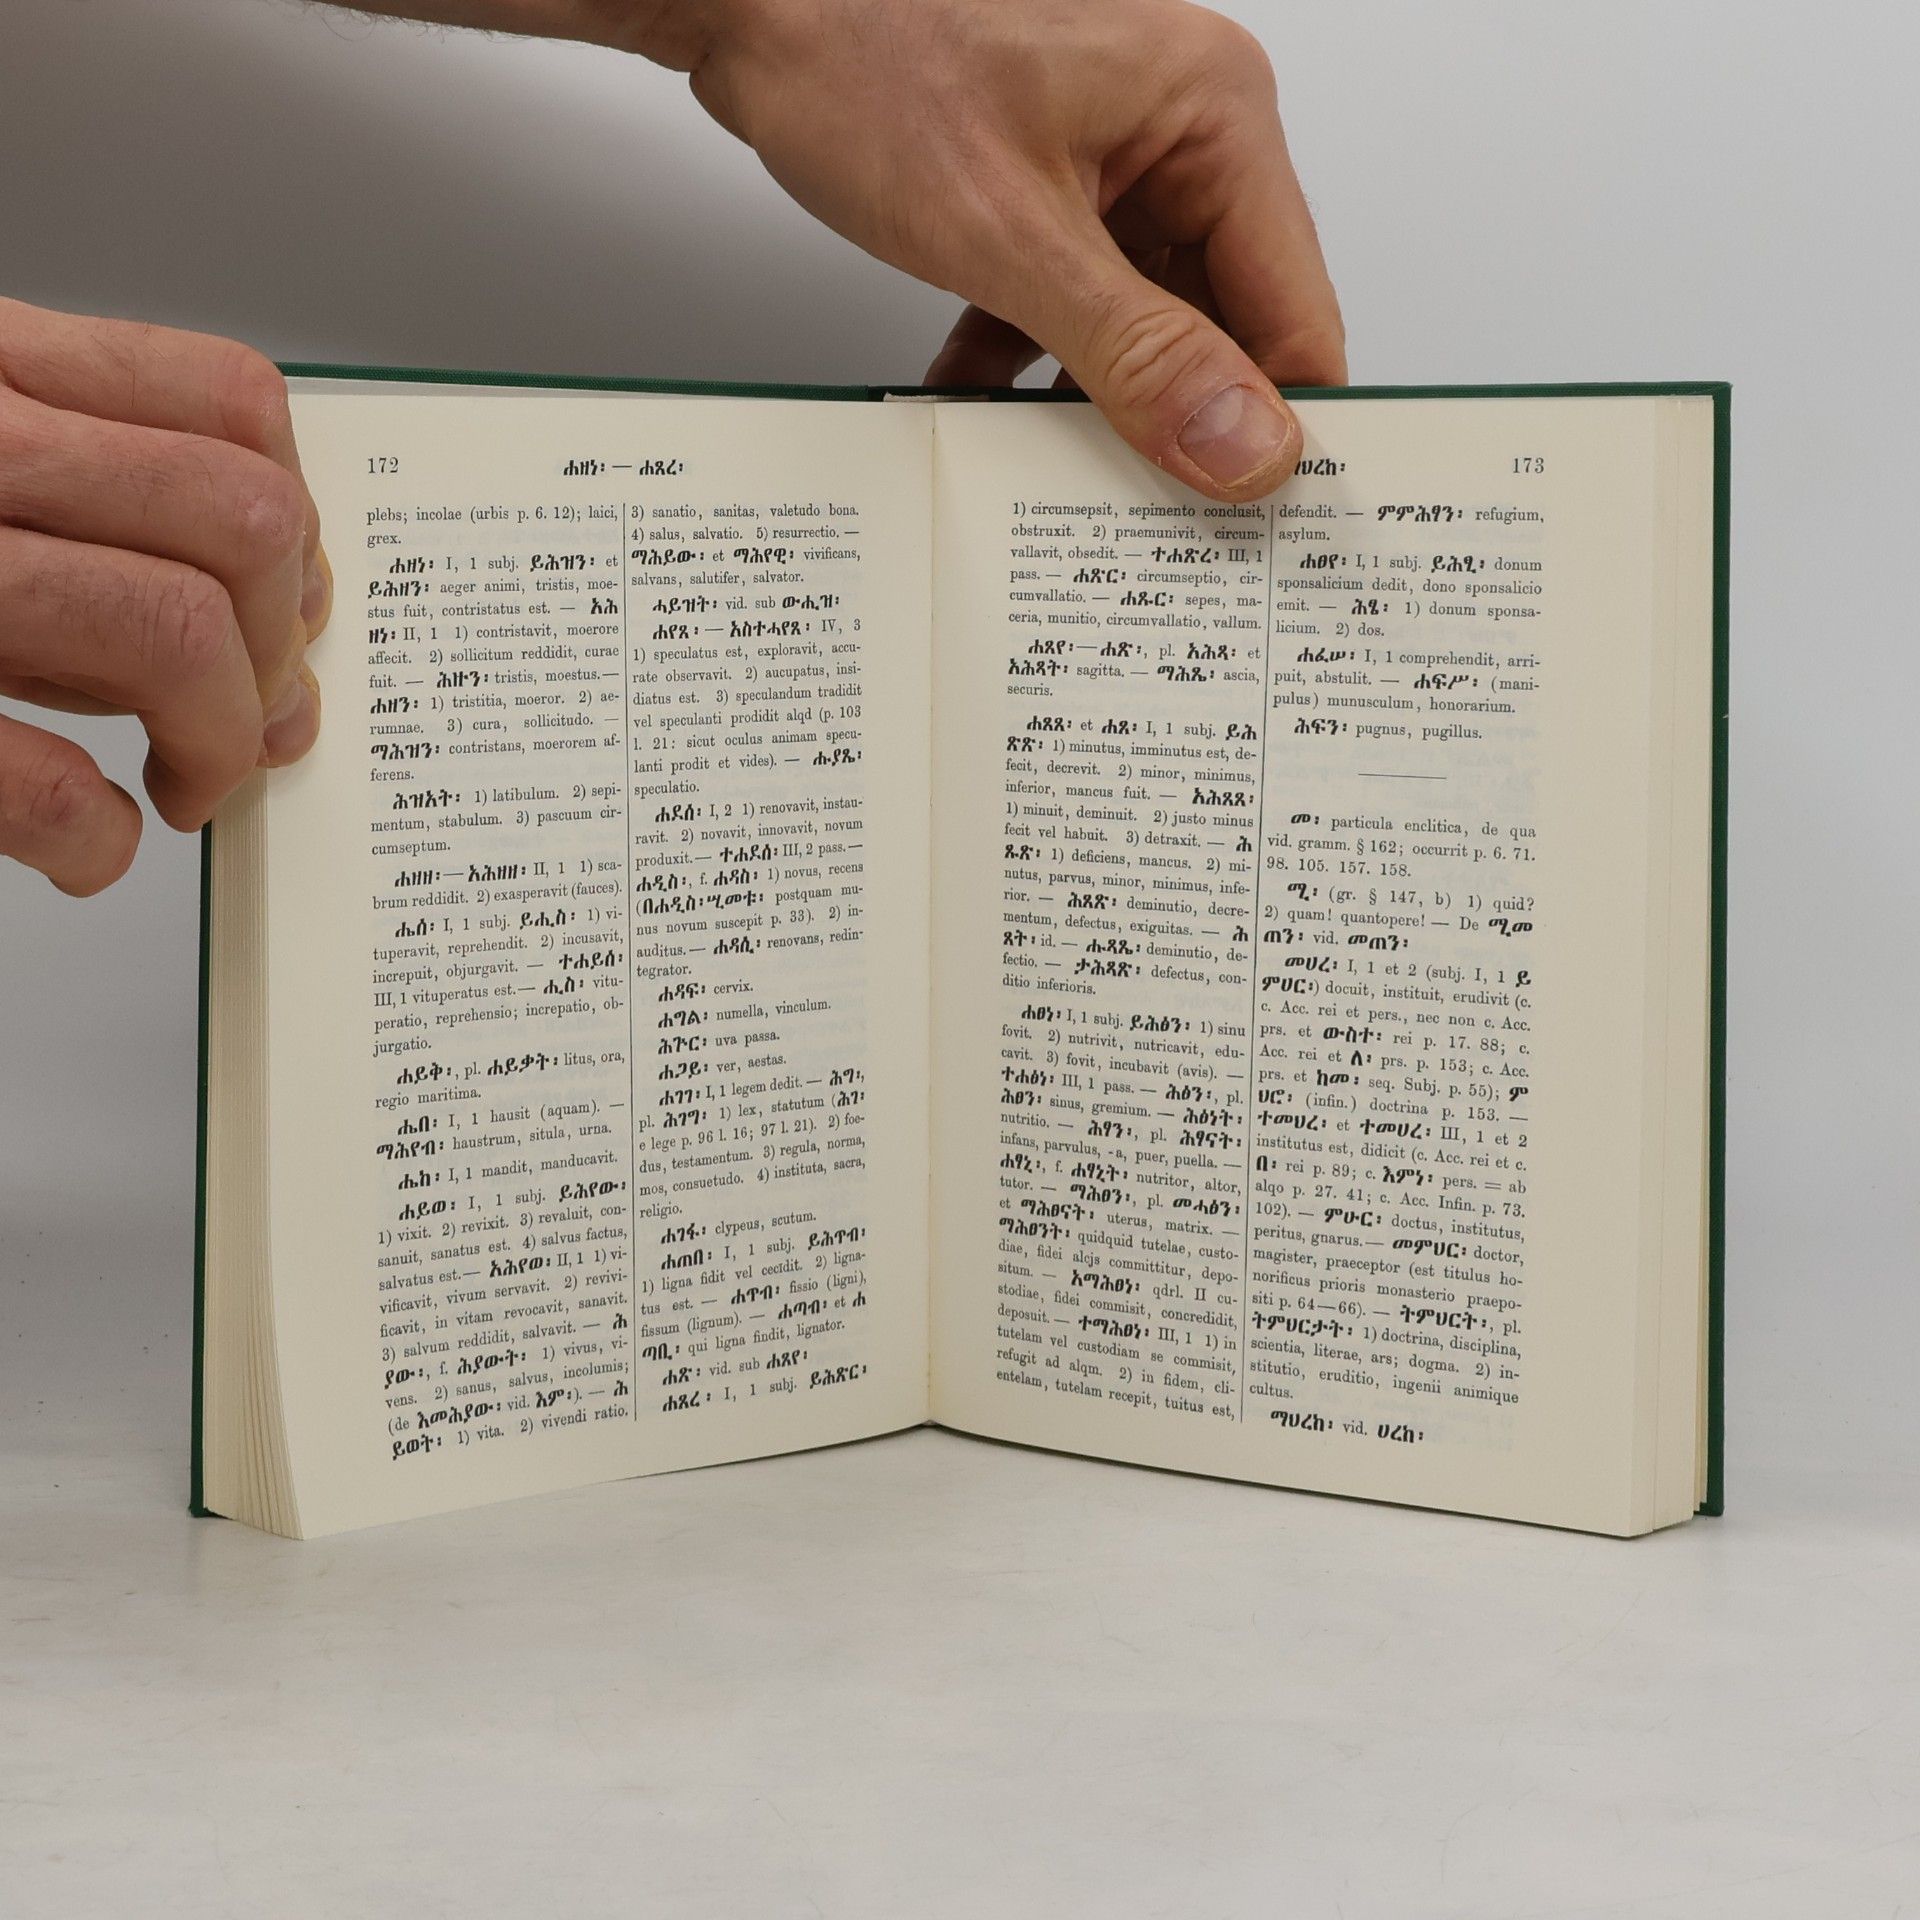 172
ሐዘነ፡ — ሐጸረ፡
plebs; incolae (urbis p. 6. 12); laici,
grex.
ሐዘነ፡ I, 1 subj. ይሕዝን፡ et
ይሕዘን፡ aeger animi, tristis, moe-
stus fuit, contristatus est. — አሕ
ዘነ፡ II, 1 1) contristavit, moerore
affecit. 2) sollicitum reddidit, curae
fuit. — ሕዙን፡ tristis, moestus.—
ሐዘን፡ 1) tristitia, moeror. 2) ae-
rumnae. 3) cura, sollicitudo. —
ማሕዝን፡ contristans, moerorem af-
ferens.
ሕዝአት፡ 1) latibulum. 2) sepi-
mentum, stabulum. 3) pascuum cir-
cumseptum.
ሐዘዘ፡— አሕዘዘ፡ II, 1 1) sca-
brum reddidit. 2) exasperavit (fauces).
ሔሰ፡ I, 1 subj. ይሒስ፡ 1) vi-
tuperavit, reprehendit. 2) incusavit,
increpuit, objurgavit. — ተሐይሰ፡
III, 1 vituperatus est.— ሒስ፡ vitu-
peratio, reprehensio; increpatio, ob-
jurgatio.
ሐይቅ፡, pl. ሐይቃት፡ litus, ora,
regio maritima.
ሔበ፡ I, 1 hausit (aquam). —
ማሕየብ፡ haustrum, situla, urna.
ሔከ፡ I, 1 mandit, manducavit.
ሐይወ፡ I, 1 subj. ይሕየው፡
1) vixit. 2) revixit. 3) revaluit, con-
sanuit, sanatus est. 4) salvus factus,
salvatus est.— አሕየወ፡ II, 1 1) vi-
vificavit, vivum servavit. 2) revivi-
ficavit, in vitam revocavit, sanavit.
3) salvum reddidit, salvavit. — ሕ
ያው፡, f. ሕያውት፡ 1) vivus, vi-
vens. 2) sanus, salvus, incolumis;
(de እመሕያው፡ vid. እም፡). — ሕ
ይወት፡ 1) vita. 2) vivendi ratio.
3) sanatio, sanitas, valetudo bona.
4) salus, salvatio. 5) resurrectio. —
ማሕይው፡ et ማሕየዊ፡ vivificans,
salvans, salutifer, salvator.
ሓይዝት፡ vid. sub ውሒዝ፡
ሐየጸ፡ — አስተሓየጸ፡ IV, 3
1) speculatus est, exploravit, accu-
rate observavit. 2) aucupatus, insi-
diatus est. 3) speculandum tradidit
vel speculanti prodidit alqd (p. 103
l. 21: sicut oculus animam specu-
lanti prodit et vides). — ሑያጼ፡
speculatio.
ሐደሰ፡ I, 2 1) renovavit, instau-
ravit. 2) novavit, innovavit, novum
produxit.— ተሐደሰ፡ III, 2 pass.—
ሐዲስ፡, f. ሐዳስ፡ 1) novus, recens
(በሐዲስ፡ሢመቱ፡ postquam mu-
nus novum suscepit p. 33). 2) in-
auditus.— ሐዳሲ፡ renovans, redin-
tegrator.
ሐዳፍ፡ cervix.
ሐግል፡ numella, vinculum.
ሕጕር፡ uva passa.
ሐጋይ፡ ver, aestas.
ሐገገ፡ I, 1 legem dedit. — ሕግ፡,
pl. ሕገግ፡ 1) lex, statutum (ሕገ፡
e lege p. 96 l. 16; 97 l. 21). 2) foe-
dus, testamentum. 3) regula, norma,
mos, consuetudo. 4) instituta, sacra,
religio.
ሐገፋ፡ clypeus, scutum.
ሐጠበ፡ I, 1 subj. ይሕጥብ፡
1) ligna fidit vel cecidit. 2) ligna-
tus est. — ሐጥብ፡ fissio (ligni),
fissum (lignum). — ሐጣብ፡ et ሐ
ጣቢ፡ qui ligna findit, lignator.
ሐጽ፡ vid. sub ሐጸየ፡
ሐጸረ፡ I, 1 subj. ይሕጽር፡
ህረከ፡
173
1) circumsepsit, sepimento conclusit,
obstruxit. 2) praemunivit, circum-
vallavit, obsedit. — ተሐጽረ፡ III, 1
pass. — ሐጽር፡ circumseptio, cir-
cumvallatio. — ሐጹር፡ sepes, ma-
ceria, munitio, circumvallatio, vallum.
ሐጸየ፡—ሐጽ፡, pl. አሕጻ፡ et
አሕጻት፡ sagitta. — ማሕጼ፡ ascia,
securis.
ሐጸጸ፡ et ሐጸ፡ I, 1 subj. ይሕ
ጽጽ፡ 1) minutus, imminutus est, de-
fecit, decrevit. 2) minor, minimus,
inferior, mancus fuit. — አሕጸጸ፡
1) minuit, deminuit. 2) justo minus
fecit vel habuit. 3) detraxit. — ሕ
ጹጽ፡ 1) deficiens, mancus. 2) mi-
nutus, parvus, minor, minimus, infe-
rior. — ሕጸጽ፡ deminutio, decre-
mentum, defectus, exiguitas. — ሕ
ጸት፡ id. — ሑጻጼ፡ deminutio, de-
fectio. — ታሕጻጽ፡ defectus, con-
ditio inferioris.
ሐፀነ፡ I, 1 subj. ይሕፅን፡ 1) sinu
fovit. 2) nutrivit, nutricavit, edu-
cavit. 3) fovit, incubavit (avis). —
ተሐፅነ፡ III, 1 pass. — ሕፅን፡, pl.
ሕፀን፡ sinus, gremium. — ሕፅነት፡
nutritio. — ሕፃን፡, pl. ሕፃናት፡
infans, parvulus, -a, puer, puella. —
ሐፃኒ፡, f. ሐፃኒት፡ nutritor, altor,
tutor. — ማሕፀን፡, pl. መሓፅን፡
et ማሕፀናት፡ uterus, matrix. —
ማሕፀንት፡ quidquid tutelae, custo-
diae, fidei alcjs committitur, depo-
situm. — አማሕፀነ፡ qdrl. II cu-
stodiae, fidei commisit, concredidit,
deposuit. — ተማሕፀነ፡ III, 1 1) in
tutelam vel custodiam se commisit,
refugit ad alqm. 2) in fidem, cli-
entelam, tutelam recepit, tuitus est,
defendit. — ምምሕፃን፡ refugium,
asylum.
ሐፀየ፡ I, 1 subj. ይሕፂ፡ donum
sponsalicium dedit, dono sponsalicio
emit. — ሕፄ፡ 1) donum sponsa-
licium. 2) dos.
ሐፈሠ፡ I, 1 comprehendit, arri-
puit, abstulit. — ሐፍሥ፡ (mani-
pulus) munusculum, honorarium.
ሕፍን፡ pugnus, pugillus.
መ፡ particula enclitica, de qua
vid. gramm. § 162; occurrit p. 6. 71.
98. 105. 157. 158.
ሚ፡ (gr. § 147, b) 1) quid?
2) quam! quantopere! — De ሚመ
ጠን፡ vid. መጠን፡
መሀረ፡ I, 1 et 2 (subj. I, 1 ይ
ምህር፡) docuit, instituit, erudivit (c.
c. Acc. rei et pers., nec non c. Acc.
prs. et ውስተ፡ rei p. 17. 88; c.
Acc. rei et ለ፡ prs. p. 153; c. Acc.
prs. et ከመ፡ seq. Subj. p. 55); ም
ህሮ፡ (infin.) doctrina p. 153. —
ተመህረ፡ et ተመሀረ፡ III, 1 et 2
institutus est, didicit (c. Acc. rei et c.
በ፡ rei p. 89; c. እምነ፡ pers. = ab
alqo p. 27. 41; c. Acc. Infin. p. 73.
102). — ምሁር፡ doctus, institutus,
peritus, gnarus.— መምህር፡ doctor,
magister, praeceptor (est titulus ho-
norificus prioris monasterio praepo-
siti p. 64—66). — ትምህርት፡, pl.
ትምህርታት፡ 1) doctrina, disciplina,
scientia, literae, ars; dogma. 2) in-
stitutio, eruditio, ingenii animique
cultus.
ማህረከ፡ vid. ህረከ፡